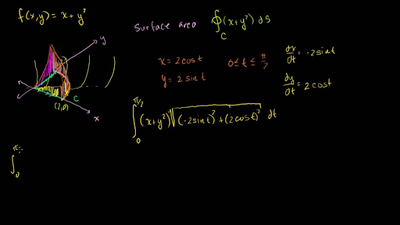 f(x,y) = x + y²
Surface area ∮_C (x+y²) ds
x = 2cost
y = 2 sint
0 ≤ t ≤ π/2
dx/dt = -2sint
dy/dt = 2cost
y
C
(2,0)
x
∫₀^(π/2) (x+y²) √((-2sint)² + (2cost)²) dt
∫₀^(π/2)